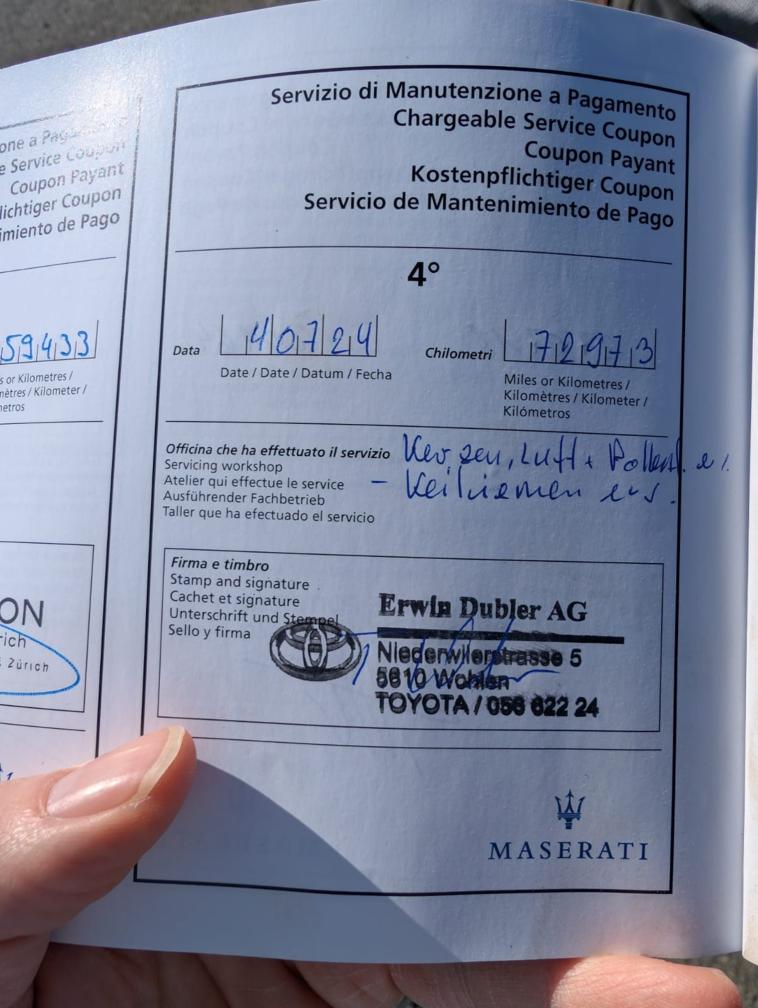 one a Pag
e Service Coupon
Coupon Payant
lichtiger Coupon
imiento de Pago
59433
s or Kilometres /
mètres / Kilometer /
metros
ON
rich
Zürich
Servizio di Manutenzione a Pagamento
Chargeable Service Coupon
Coupon Payant
Kostenpflichtiger Coupon
Servicio de Mantenimiento de Pago
4°
Data 40724
Date / Date / Datum / Fecha
Chilometri 72973
Miles or Kilometres /
Kilomètres / Kilometer /
Kilómetros
Officina che ha effettuato il servizio
Servicing workshop
Atelier qui effectue le service
Ausführender Fachbetrieb
Taller que ha efectuado el servicio
Kerzen, Luft + Pollenf.
- Keilriemen ers.
Firma e timbro
Stamp and signature
Cachet et signature
Unterschrift und Stempel
Sello y firma
Erwin Dubler AG
Niederwilerstrasse 5
5610 Wohlen
TOYOTA / 056 622 24
MASERATI